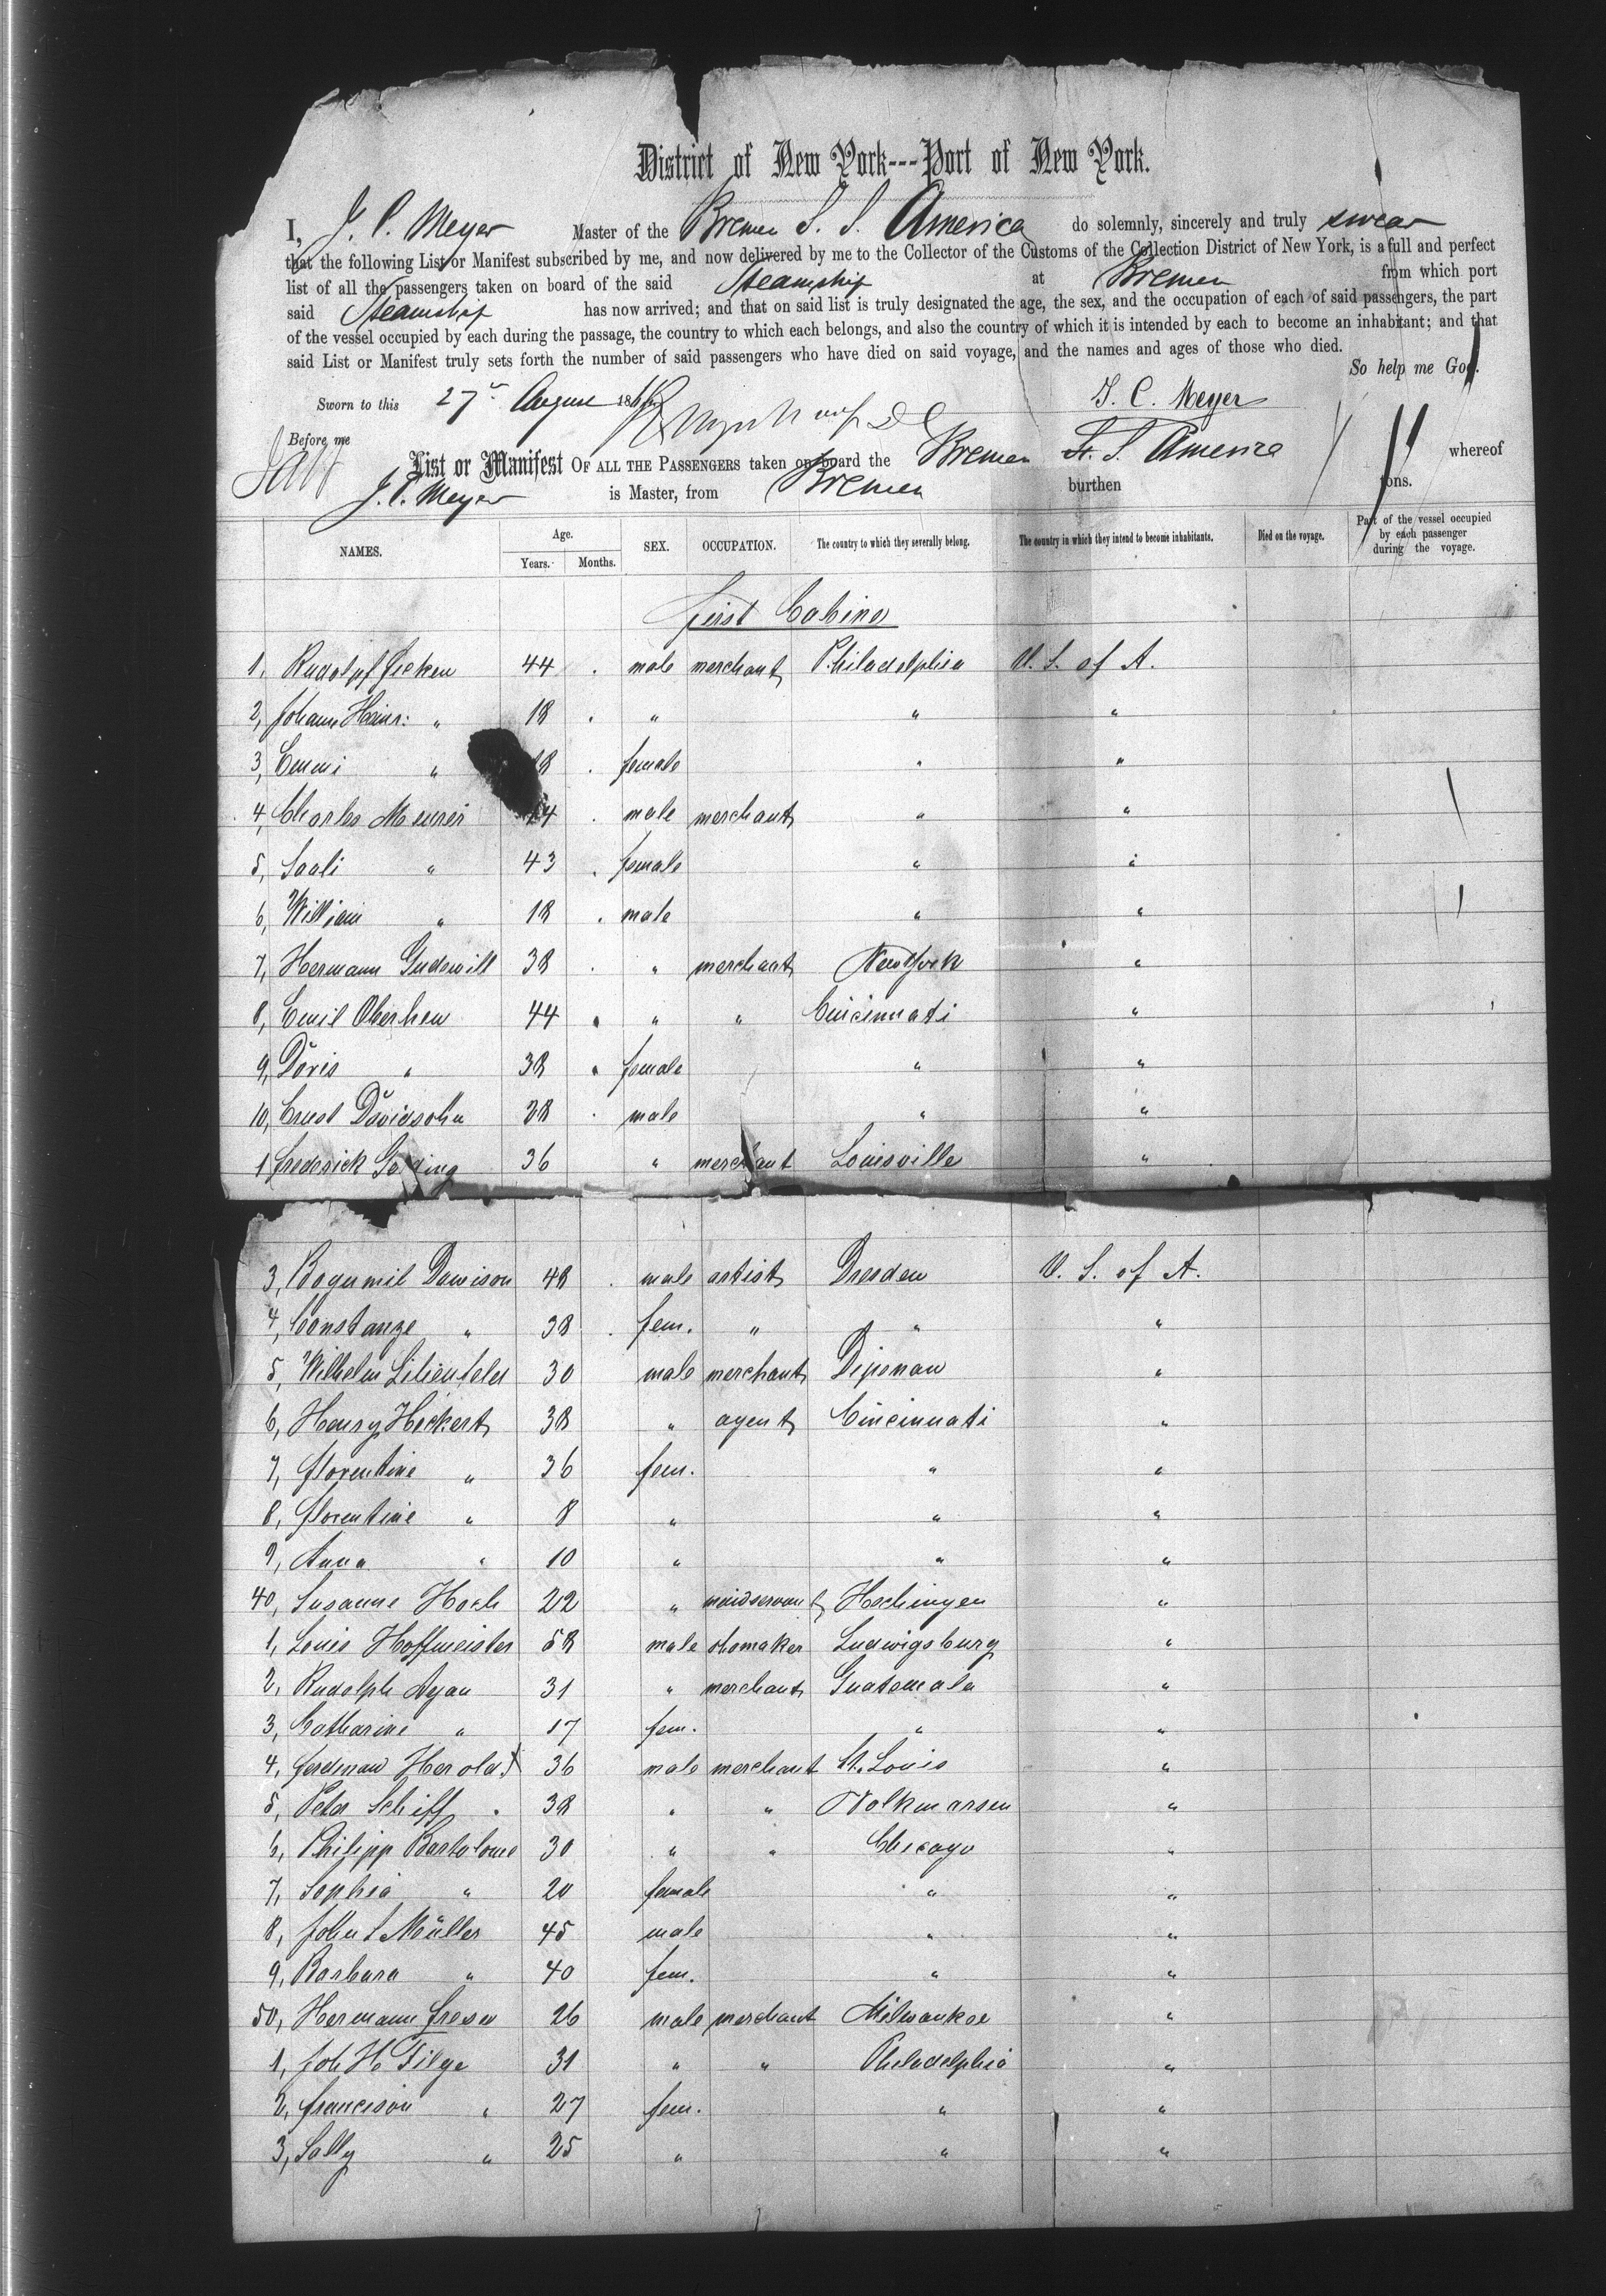 District of New York---Port of New York.
I, J. C. Meyer Master of the Bremen S. S. America do solemnly, sincerely and truly swear
that the following List or Manifest subscribed by me, and now delivered by me to the Collector of the Customs of the Collection District of New York, is a full and perfect
list of all the passengers taken on board of the said Steamship at Bremen from which port
said Steamship has now arrived; and that on said list is truly designated the age, the sex, and the occupation of each of said passengers, the part
of the vessel occupied by each during the passage, the country to which each belongs, and also the country of which it is intended by each to become an inhabitant; and that
said List or Manifest truly sets forth the number of said passengers who have died on said voyage, and the names and ages of those who died.
So help me God.
Sworn to this 27 August 186 J. C. Meyer
Before me
List or Manifest OF ALL THE PASSENGERS taken on board the Bremen St. S. America whereof
J. C. Meyer is Master, from Bremen burthen tons.
NAMES. Age. Years. Months. SEX. OCCUPATION. The country to which they severally belong. The country in which they intend to become inhabitants. Died on the voyage. Part of the vessel occupied by each passenger during the voyage.
First Cabina
1, Rudolph Ficken 44 male merchant Philadelphia U. S. of A.
2, Johann Heinr: " 18 " " "
3, Emmi " 18 female " "
4, Charles 44 male merchant " "
5, " 43 female " "
6, William " 18 male " "
7, Hermann Gudewill 38 " merchant New York "
8, Emil 44 " " Cincinnati "
9, Doris " 38 female " "
10, Ernst Davidsohn 28 male " "
1 Frederick 36 " merchant Louisville "
3, Bogumil Dawison 48 male artist Dresden U. S. of A.
4, Constanze " 38 fem. " " "
5, Wilhelm Lilienfeld 30 male merchant Diepenau "
6, Henry Heckert 38 " agent Cincinnati "
7, Florentine " 36 fem. " "
8, Florentine " 8 " " "
9, Anna " 10 " " "
40, Susanne Hoch 22 " maidservant Hechingen "
1, Louis Hoffmeister 58 male shomaker Ludwigsburg "
2, Rudolph 31 " merchant Guatemala "
3, Catharine " 17 fem. " "
4, Herold 36 male merchant St. Louis "
5, Peter Schiff 38 " " Volkmarsen "
6, Philipp Bartolome 30 " " Chicago "
7, Sophia " 20 female " "
8, John S Müller 45 male " "
9, Barbara " 40 fem. " "
50, Hermann Frese 26 male merchant Milwaukee "
1, Joh H Tilge 31 " " Philadelphia "
2, " 27 fem. " "
3, Sally " 25 " " "